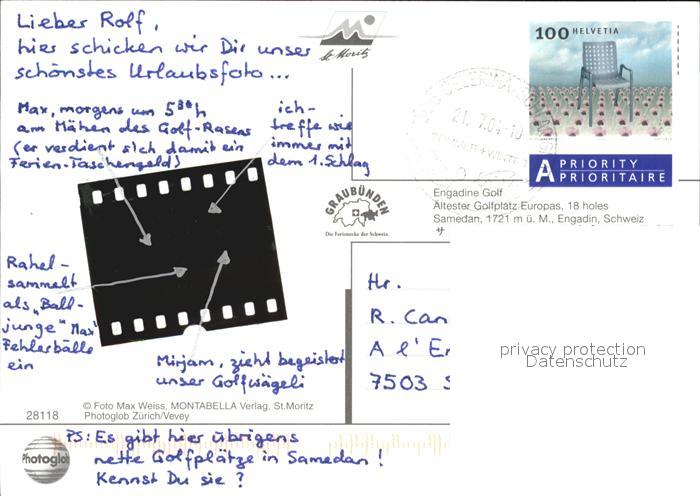 Lieber Rolf,
hier schicken wir Dir unser
schönstes Urlaubsfoto...
Max, morgens um 5³⁰h
am Mähen des Golf-Rasens
(er verdient sich damit ein
Ferien-Taschengeld)
ich-
treffe wie
immer mit
dem 1. Schlag
Rahel-
sammelt
als "Ball-
junge" Max'
Fehlerbälle
ein
Mirjam, zieht begeistert
unser Golfwägeli
© Foto Max Weiss, MONTABELLA Verlag, St.Moritz
28118
Photoglob Zürich/Vevey
Photoglob
PS: Es gibt hier übrigens
nette Golfplätze in Samedan!
Kennst Du sie?
St. Moritz
100 HELVETIA
A PRIORITY
PRIORITAIRE
CELERINA
21.7.04-10
GRAUBÜNDEN
Die Ferienecke der Schweiz.
Engadine Golf
Ältester Golfplatz Europas, 18 holes
Samedan, 1721 m ü. M., Engadin, Schweiz
Hr.
R. Can
A l'E
7503 S
privacy protection
Datenschutz